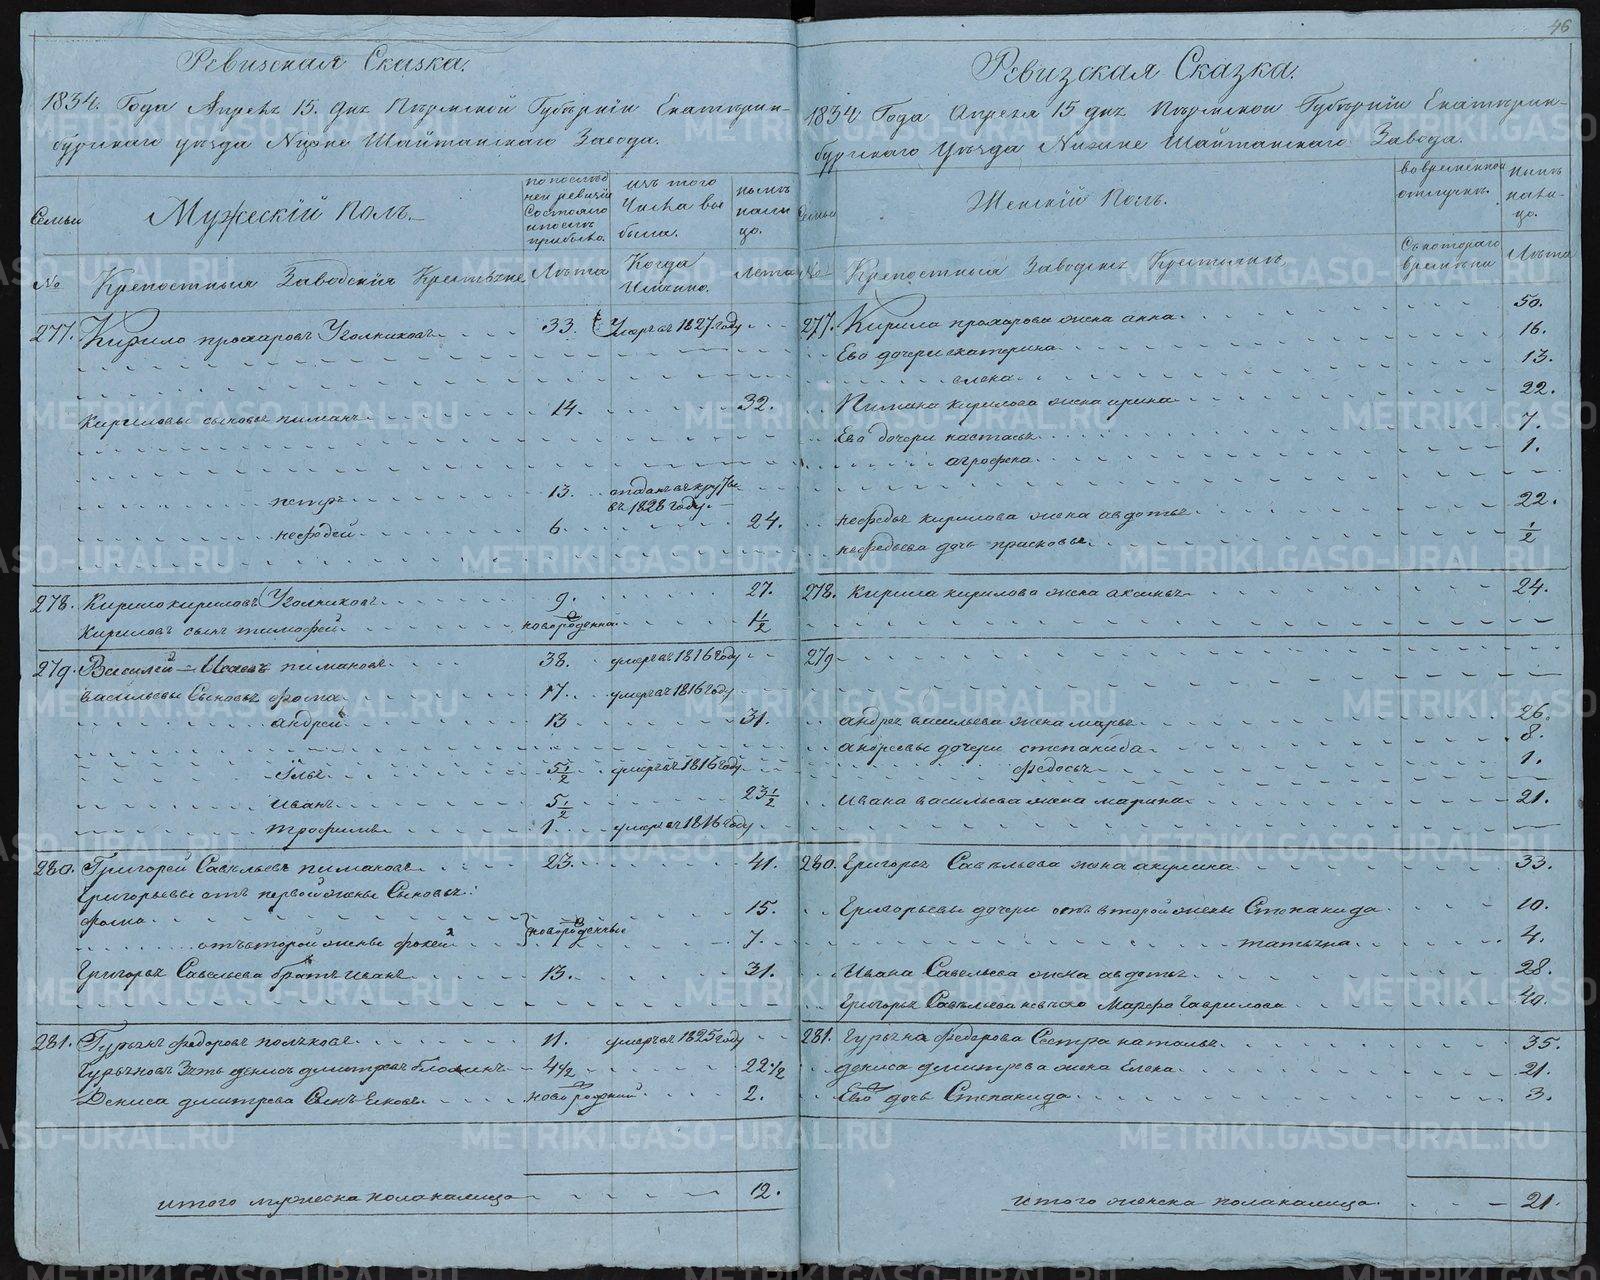 Ревизская Сказка.
1834. Года Апрель 15. дня Пермской Губернии Екатерин-
бургскаго уезда Нижне Шайтанскаго Завода.
Семьи
Мужескій Полъ.
по послед
ней ревизіи
Состояло
и после
прибыло.
изъ того
Числа вы
было.
ныне
на ли
цо.
№
Крепостныя Заводскія Крестьяне
Лѣта
Когда
Имянно.
Лета
277. Кирило прохаровъ Уголниковъ 33. Умеръ въ 1827 году
Кириловы сыновья пиманъ 14. 32.
петръ 13. отданъ въ рекруты
въ 1828 году.
нефедей 6. 24.
278. Кирило кириловъ Уголниковъ 9. 27.
Кириловъ сынъ тимофей новорожденна 1/2
279. Василей Исаевъ пимановъ 38. умеръ въ 1816 году
васильевы Сыновья фома 17. умеръ въ 1816 году
андрей 13 31.
Илья 5 1/2 умеръ въ 1816 году
иванъ 5 1/2 23 1/2
трофимъ 1 умеръ въ 1816 году
280. Григорей Савельевъ пимановъ 23. 41.
Григорьевы отъ первой жены Сыновья:
фома 15.
отъ второй жены фокей новорожденные 7.
Григорья Савельева братъ иванъ 13. 31.
281. Гурьянъ федоровъ полековъ 11. умеръ въ 1825 году
Гурьяновъ Зять денисъ дмитревъ блохинъ 4 1/2 22 1/2
Дениса дмитрева Сынъ новорожденный 2.
итого мужеска пола налицо 12.
46
Ревизская Сказка.
1834 Года Апреля 15 дня Пермской Губерніи Екатерин-
бургскаго Уезда Нижне Шайтанскаго Завода.
Семьи
Женскій Полъ.
во временной
отлучке.
ныне
нали-
цо.
№
Крепостныя Заводскія Крестьянки
Съ котораго
времени
Лѣта
277. Кирила прохарова жена анна 50.
Ево дочери екатерина 16.
елена 13.
Пимана кирилова жена ирина 22.
Ево дочери настасья 7.
агрофена 1.
нефедья кирилова жена авдотья 22.
нефедьева дочь прасковья 1/2
278. Кирила кирилова жена аксинья 24.
279
андрея васильева жена марья 26.
андреевы дочери степанида 8.
федосья 1.
ивана васильева жена марина 21.
280. Григорья Савельева жена акулина 33.
Григорьевы дочери отъ второй жены Степанида 10.
татьяна 4.
Ивана Савельева жена авдотья 28.
Григорья Савельева невеска Марфа Гаврилова 40.
281. Гурьяна федорова Сестра наталья 35.
дениса дмитрева жена Елена 21.
Ево дочь Степанида 3.
итого женска пола налицо 21.
METRIKI.GASO-URAL.RU